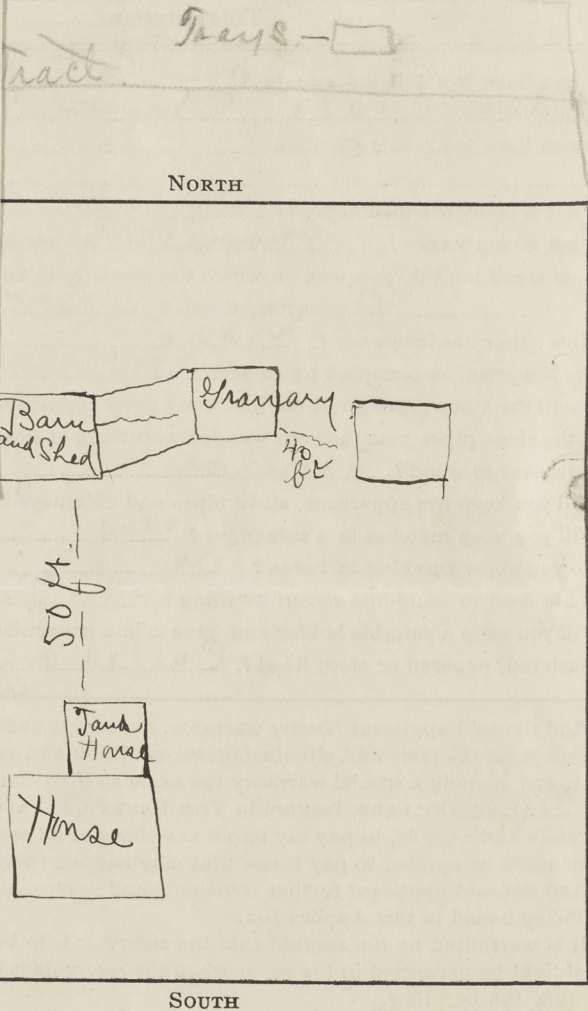 Trays –
tract.
NORTH
Barn
and Shed
Granary
40
ft
50 ft.
Tank
House
House
SOUTH